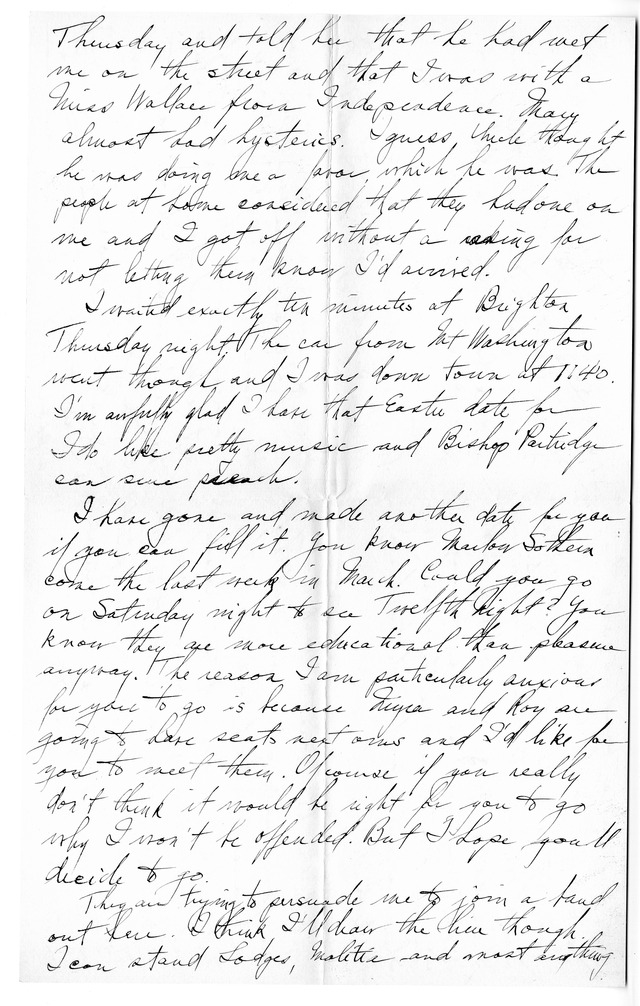 Thursday and told her that he had met
me on the street and that I was with a
Miss Wallace from Independence. Mary
almost had hysterics. I guess Uncle thought
he was doing me a favor, which he was. The
people at home considered that they had one on
me and I got off without a roasting for
not letting them know I'd arrived.
I waited exactly ten minutes at Brighton
Thursday night. The car from Mt Washington
went though and I was down town at 11:40.
I'm awfully glad I have that Easter date for
I do like pretty music and Bishop Partridge
can sure preach.
I have gone and made another date for you
if you can fill it. You know Marlow Sothern
come the last week in March. Could you go
on Saturday night to see Twelfth Night? You
know they are more educational than pleasure
anyway. The reason I am particularly anxious
for you to go is because Myra and Roy are
going to have seats next ours and I'd like for
you to meet them. Of course if you really
don't think it would be right for you to go
why I won't be offended. But I hope you'll
decide to go.
They are trying to persuade me to join a band
out here. I think I'll draw the line though.
I can stand Lodges, Molitie and most anything